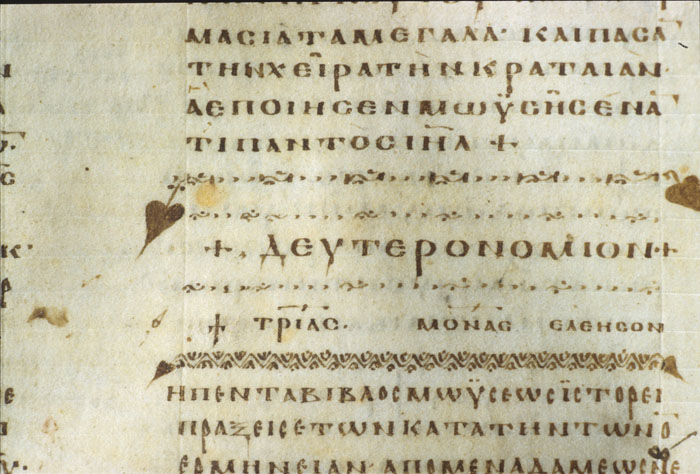 ΜΑCΙΑΤΑΜΕΓΑΛΑ· ΚΑΙΠΑCΑ
ΤΗΝΧΕΙΡΑΤΗΝΚΡΑΤΑΙΑΝ·
ΑΕΠΟΙΗCΕΝΜΩΫCΗCΕΝΑ
ΤΙΠΑΝΤΟCΙΗΛ +
+. ΔΕΥΤΕΡΟΝΟΜΙΟΝ·+
+ ΤΡΙΑC· ΜΟΝΑC ΕΛΕΗCΟΝ
ΗΠΕΝΤΑΒΙΒΛΟCΜΩΫCΕΩCΪCΤΟΡΕΙ
ΠΡΑΞΕΙCΕΤΩΝΚΑΤΑΤΗΝΤΩΝΟ
ΕΡΜΗΝΕΙΑΝ· ΑΠΟΜΕΝΑΔΑΜΕΩCΝΕ